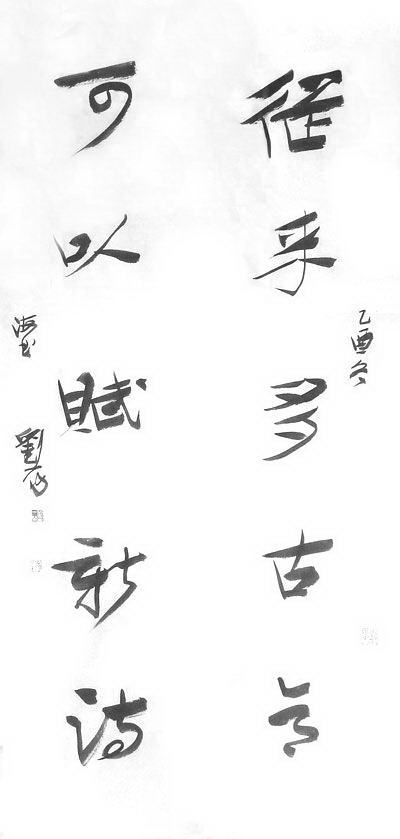 乙酉冬
從來多古意
可以賦新詩
劉